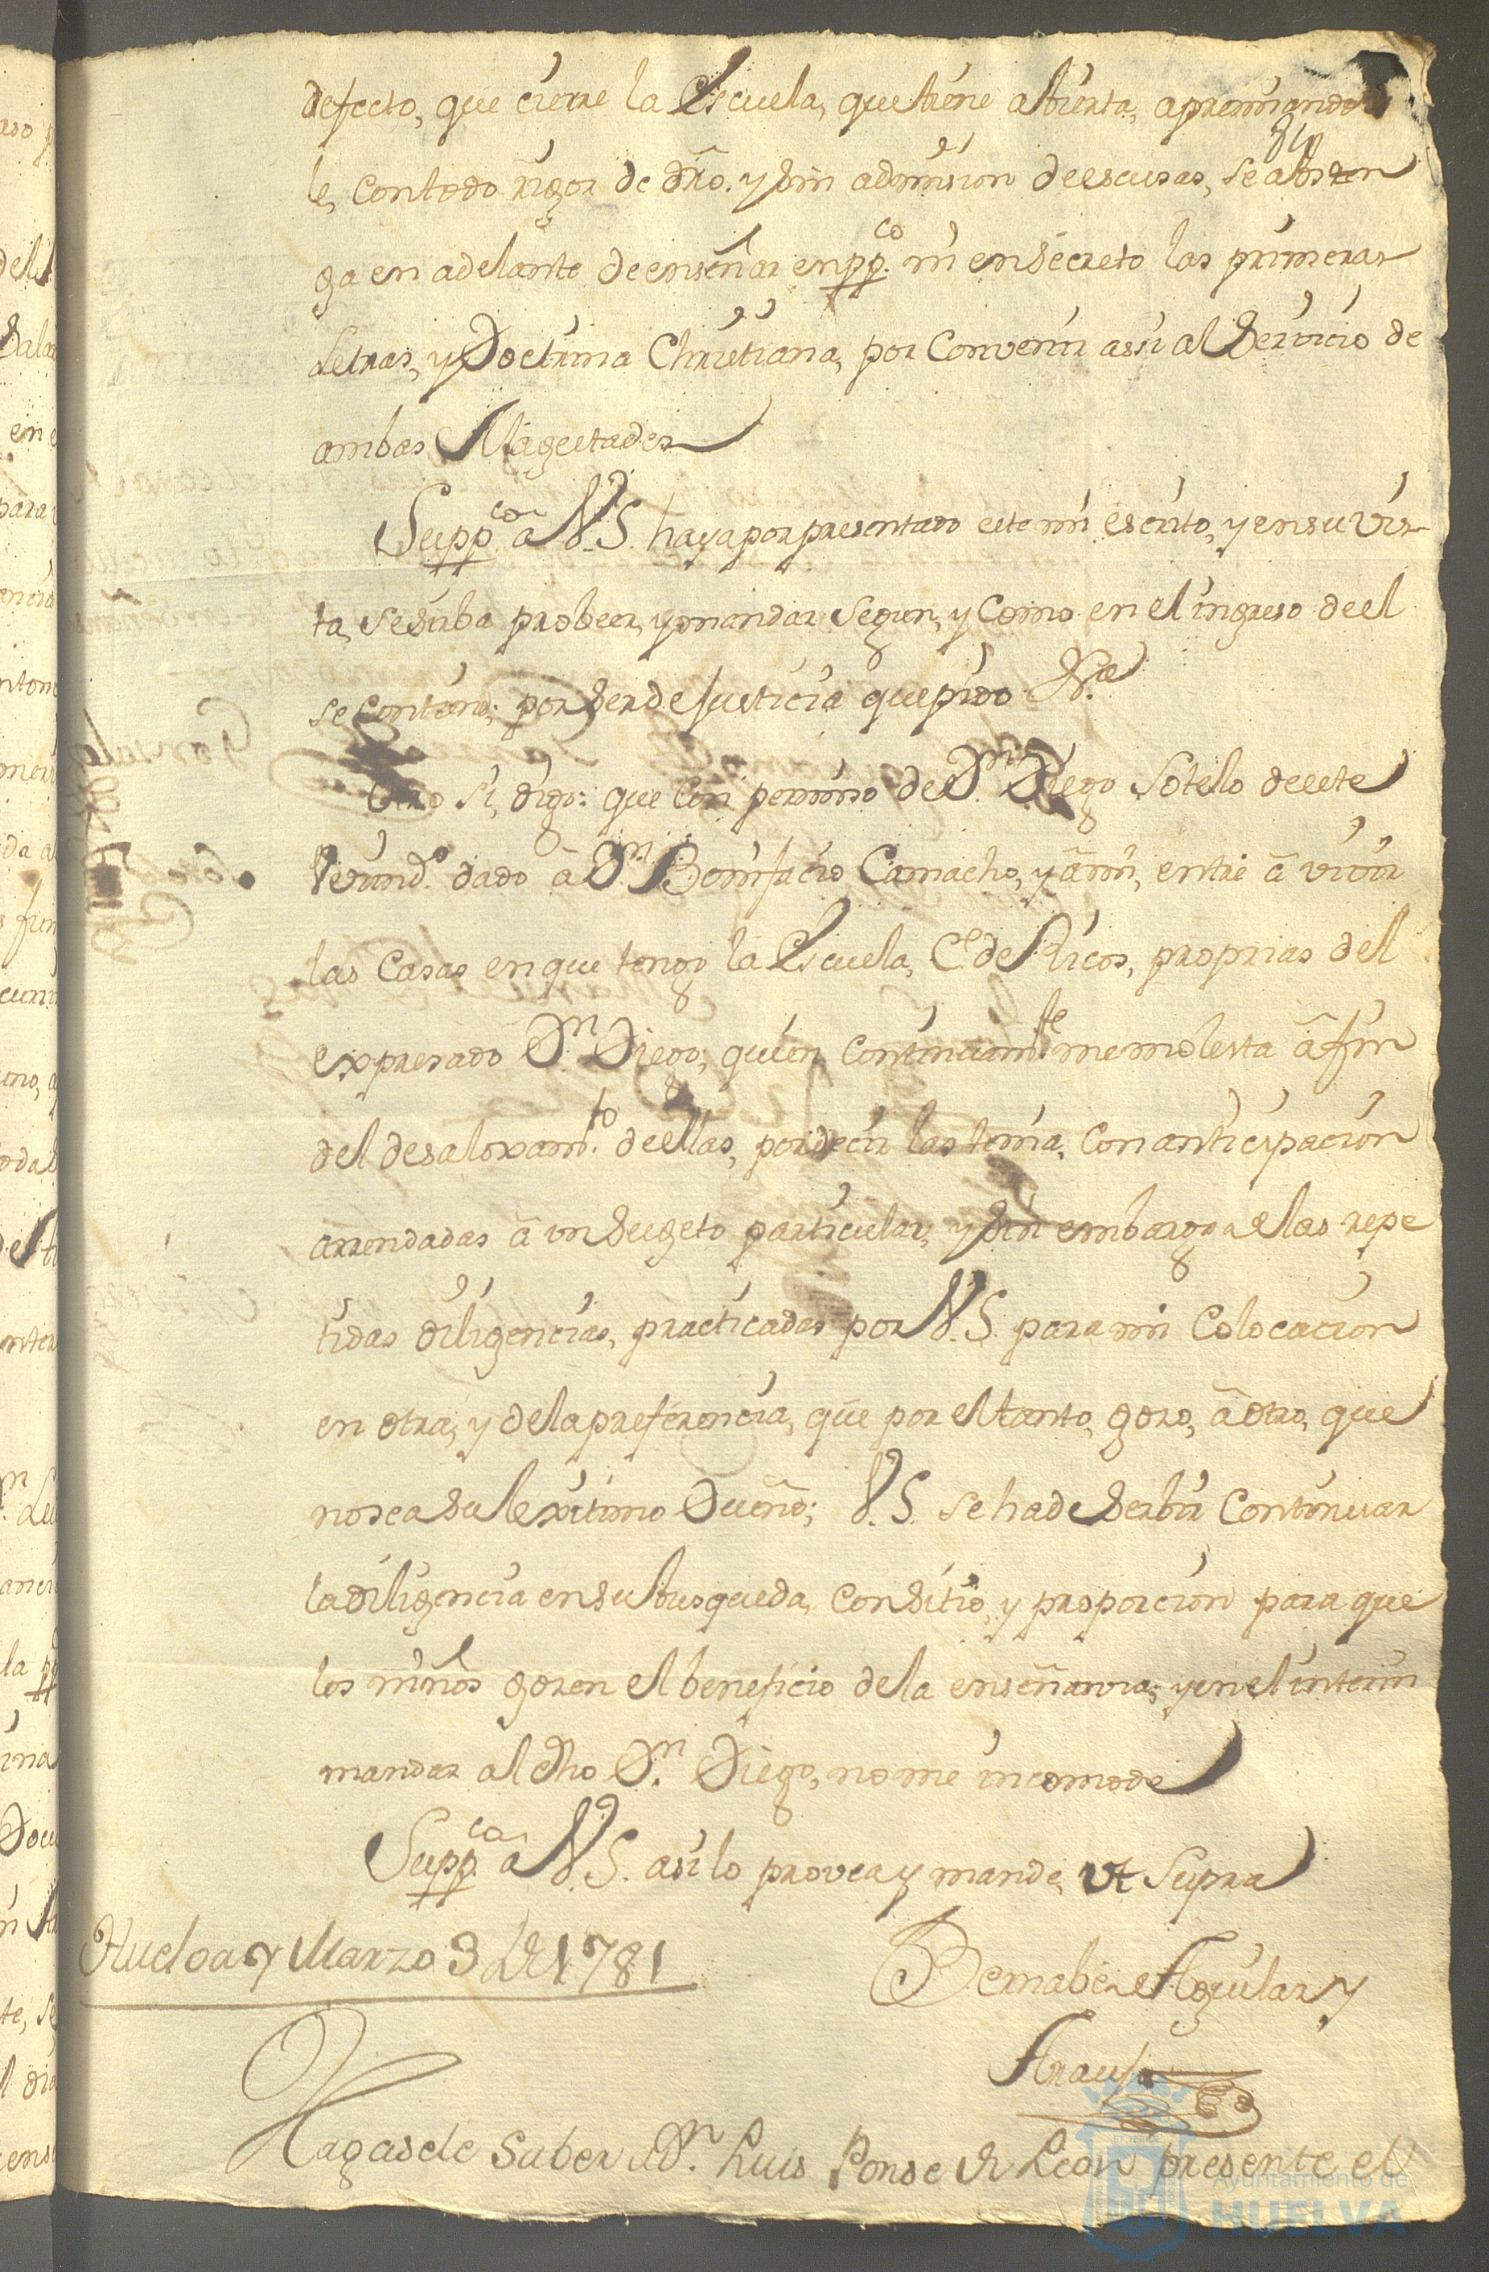 defecto, que cierre la Escuela, que tiene abierta, apremiando
le, con todo rigor de dro. y sin admision de escusas, se absten
ga en adelante de enseñar en ppco. ni en secreto las primeras
Letras, y Doctrina Christiana, por convenir assi al Servicio de
ambas Magestades
Suppco. a V.S. haya por presentado este mi escrito, y en su vis-
ta, se sirba probeer, y mandar segun, y como en el ingreso de el
se contiene; por ser de justicia que pido &a.
Otro si, digo: que con permiso de Dn. Diego Sotelo de este
Vecind.o dado â Dn. Bonifacio Camacho, y â mi, entré â vivir
las Casas en que tengo la Escuela, Ce. de Ricos, proprias del
expresado Dn. Diego, quien continuamte. me molesta â fin
del desaloxamto. de ellas, por decir las tenia, con anticipacion
arrendadas â un Sugeto particular, y sin embargo a las repe
tidas diligencias, practicadas por V.S. para mi colocacion
en otra, y de la preferencia, que por el tanto, gozo, â otro, que
no sea su lexitimo Dueño; V.S. se ha de serbir continuar
la diligencia en su busqueda, con sitio, y proporcion para que
los niños gozen el beneficio de la enseñanza; y en el interin
mandar al dho Dn. Diego, no me incomode
Suppca. a V.S. asi lo provea y mande, ut supra
Huelva y Marzo 3 de 1781
Bernabe Aguilar y
Araujo
Hagasele saber a Dn. Luis Ponse de Leon presente el
Ayuntamiento de
HUELVA